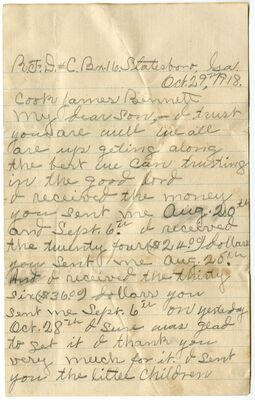 R.F.D. #C. Bx 16. Statesboro Ga.
Oct. 29th, 1918.
Cook James Bennett
My dear Son, - I trust
you are well we all
are up geting along
the best we can trusting
in the good lord
I received the money
you sent me Aug. 20th
and Sept. 6th I received
the twenty four ($24.00) dollars
you sent me Aug. 20th
And I received the thirty
six ($36.00) dollars you
sent me Sept. 6th on yesterday
Oct. 28th I sure was glad
to get it I thank you
very much for it I sent
you the little children